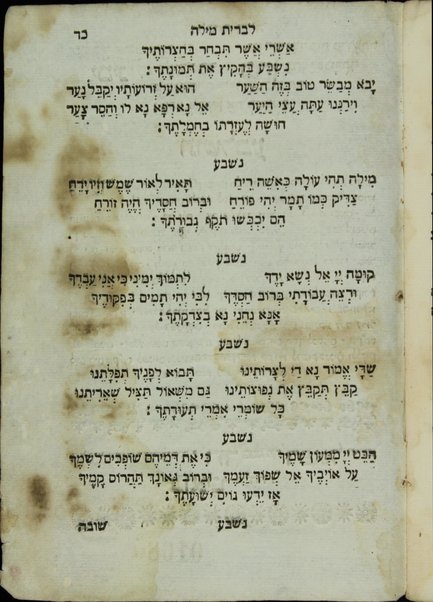 לברית מילה כד
אשרי אשר תבחר בחצרותיך
נשבע בהקיץ את תמונתך:
יבא מבשר טוב בזה השער הוא על זרועותיו יקבל נער
וירננו עתה עצי היער אל נא רפא נא לו והסר צער
חושה לעזרתו בחמלתך:
נשבע
מילה תהי עולה כאשה ריח תאיר לאור שמש וזיו ירח
צדיק כמו תמר יהי פורח וברוב חסדיך היה זורח
הם יכבשו תקף גבורתך:
נשבע
קומה יי אל נשא ידך לתמוך ימיני כי אני עבדך
ורצה עבודתי ברוב חסדך לבי יהי תמים בפקודיך
אנא נחני נא בצדקתך:
נשבע
שדי אמור נא די לצרותינו תבוא לפניך תפלתנו
קבץ תקבץ את נפוצותינו גם משאול תציל שאריתנו
כל שומרי אמרי תעודתך:
נשבע
הבט יי ממעון שמיך כי את דמיהם שופכים לשמך
על אויביך אל שפוך זעמך וברוב גאונך תהרוס קמיך
אז ידעו גוים ישועתך:
נשבע שובה